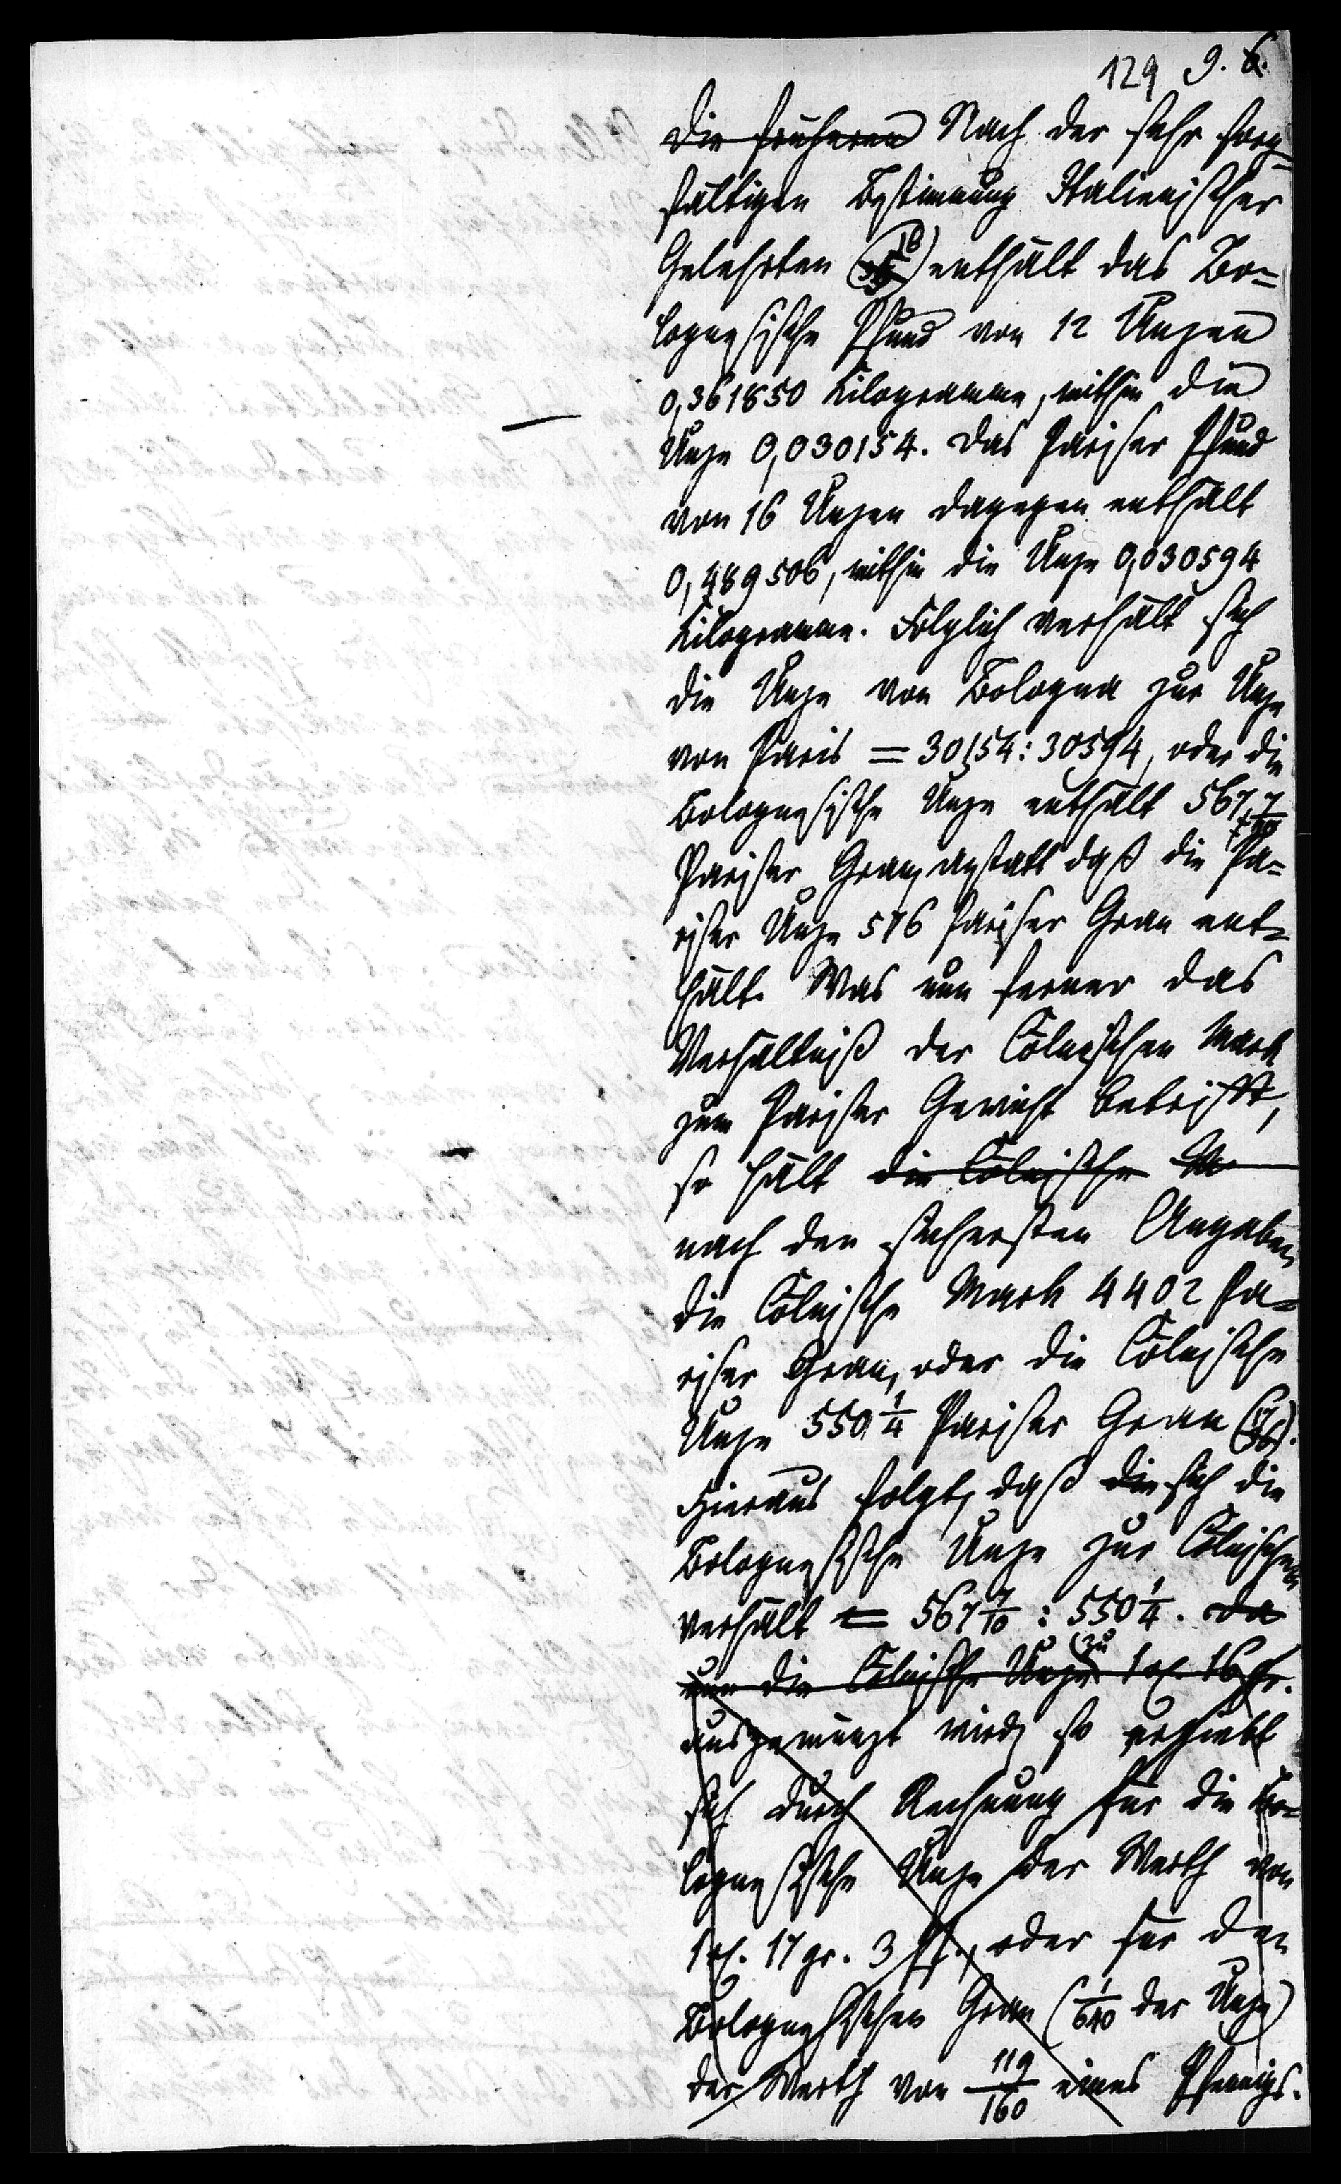 129 9. 6.
Die früheren Nach der sehr sorg=
fältigen Bestimmung Italienischer
Gelehrten (16) enthält das Bo=
lognesische Pfund von 12 Unzen
0,361850 Kilogramme, mithin die
Unze 0,030154. Das Pariser Pfund
von 16 Unzen dagegen enthält
0,489506, mithin die Unze 0,030594
Kilogramme. Folglich verhält sich
die Unze von Bologna zur Unze
von Paris = 30154:30594, oder die
Bolognesische Unze enthält 567 7/10
Pariser Gran, anstatt daß die Pa=
riser Unze 576 Pariser Gran ent=
hält. Was nun ferner das
Verhältniß der Cölnischen Mark
zum Pariser Gewicht betrifft,
so hält die Cölnische M
nach den sichersten Angaben
die Cölnische Mark 4402 Pa=
riser Gran, oder die Cölnische
Unze 550 1/4 Pariser Gran (17).
Hieraus folgt, daß die sich die
Bolognesische Unze zur Cölnischen
verhält = 567 7/10 : 550 1/4. Da
nun die Cölnische Unze zu 1 rt. 16 gr.
ausgemünzt wird, so ergiebt
sich durch Rechnung für die Bo=
lognesische Unze der Werth von
1 rt. 17 gr. 3 Pf., oder für den
Bolognesischen Gran (1/640 der Unze)
der Werth von 119/160 eines Pfennigs.